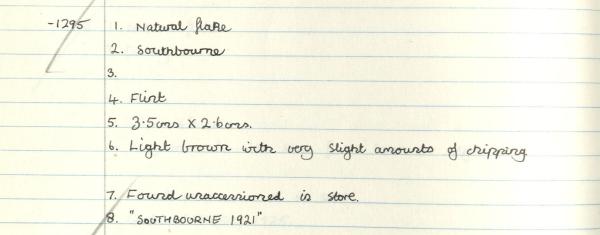 -1295 1. Natural flake
2. Southbourne
3.
4. Flint
5. 3.5cms X 2.6cms.
6. Light brown with very slight amounts of chipping
7. Found unaccessioned in store.
8. "SOUTHBOURNE 1921"